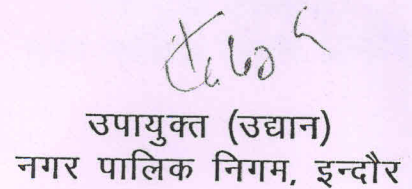 उपायुक्त (उद्यान)
नगर पालिक निगम, इन्दौर